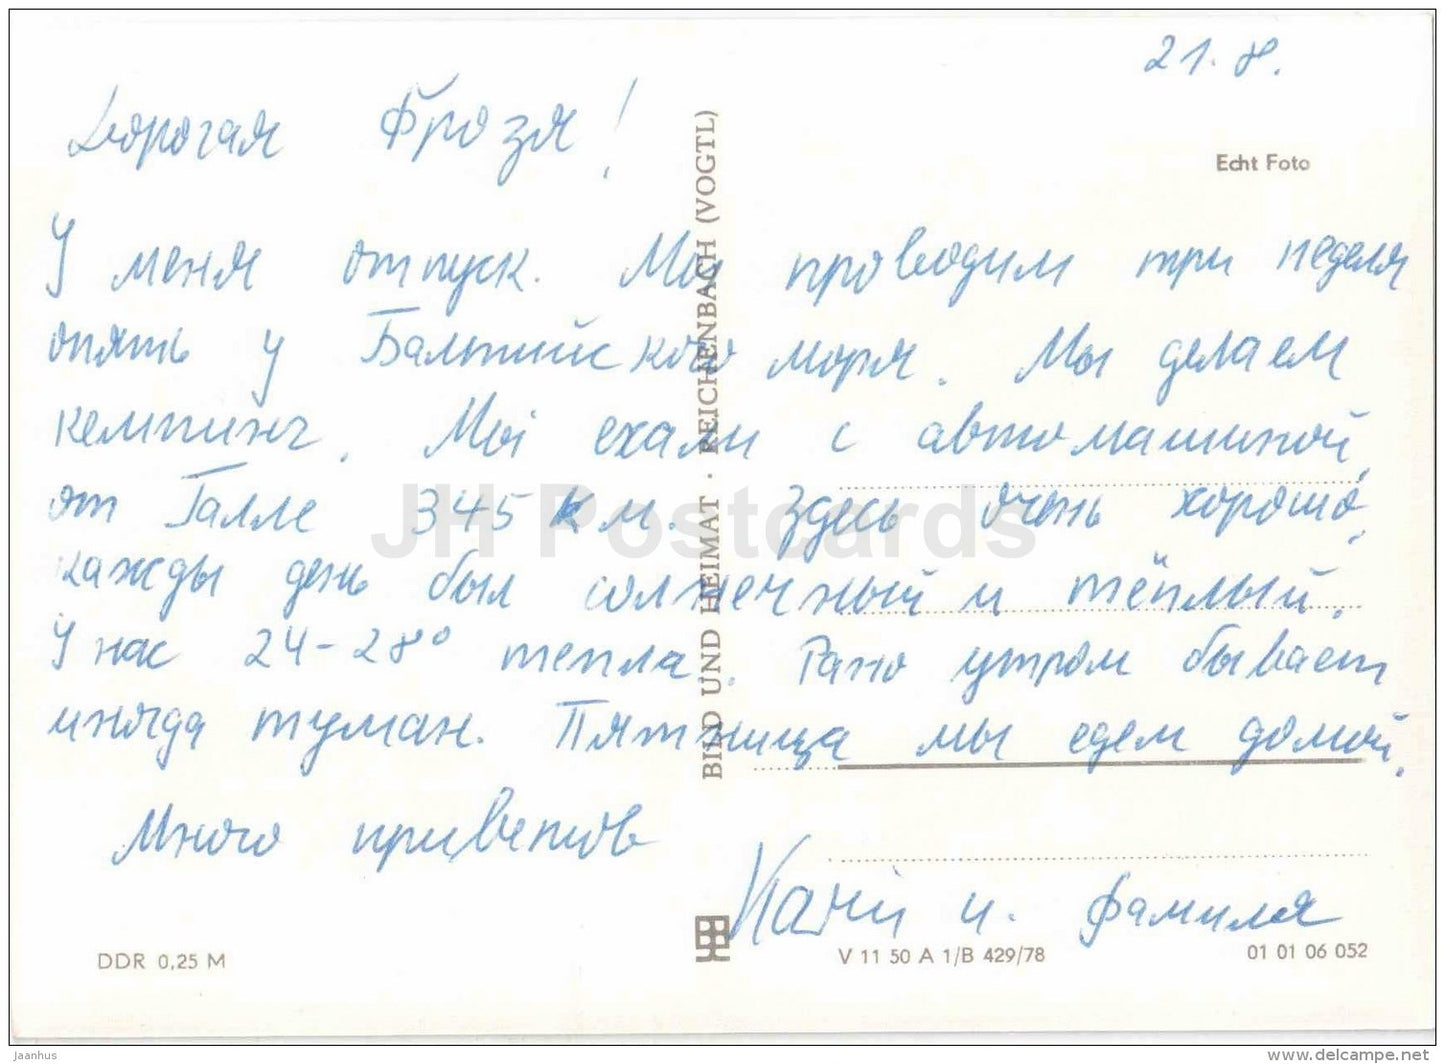 21. 8.
Дорогая Фрозя!
Echt Foto
У меня отпуск. Мы проводим три неделя
опять у Балтийского моря. Мы делаем
кемпинг. Мы ехали с автомашиной,
от Галле 345 км. Здесь очень хорошо,
кажды день был солнечный и тёплый.
У нас 24-28° тепла. Рано утром бывает
иногда туман. Пятница мы едем домой.
Много приветов
и. фамиля
BILD UND HEIMAT · REICHENBACH (VOGTL)
JH Postcards
DDR 0,25 M
V 11 50 A 1/B 429/78
01 01 06 052
jaanhus
www.delcampe.net